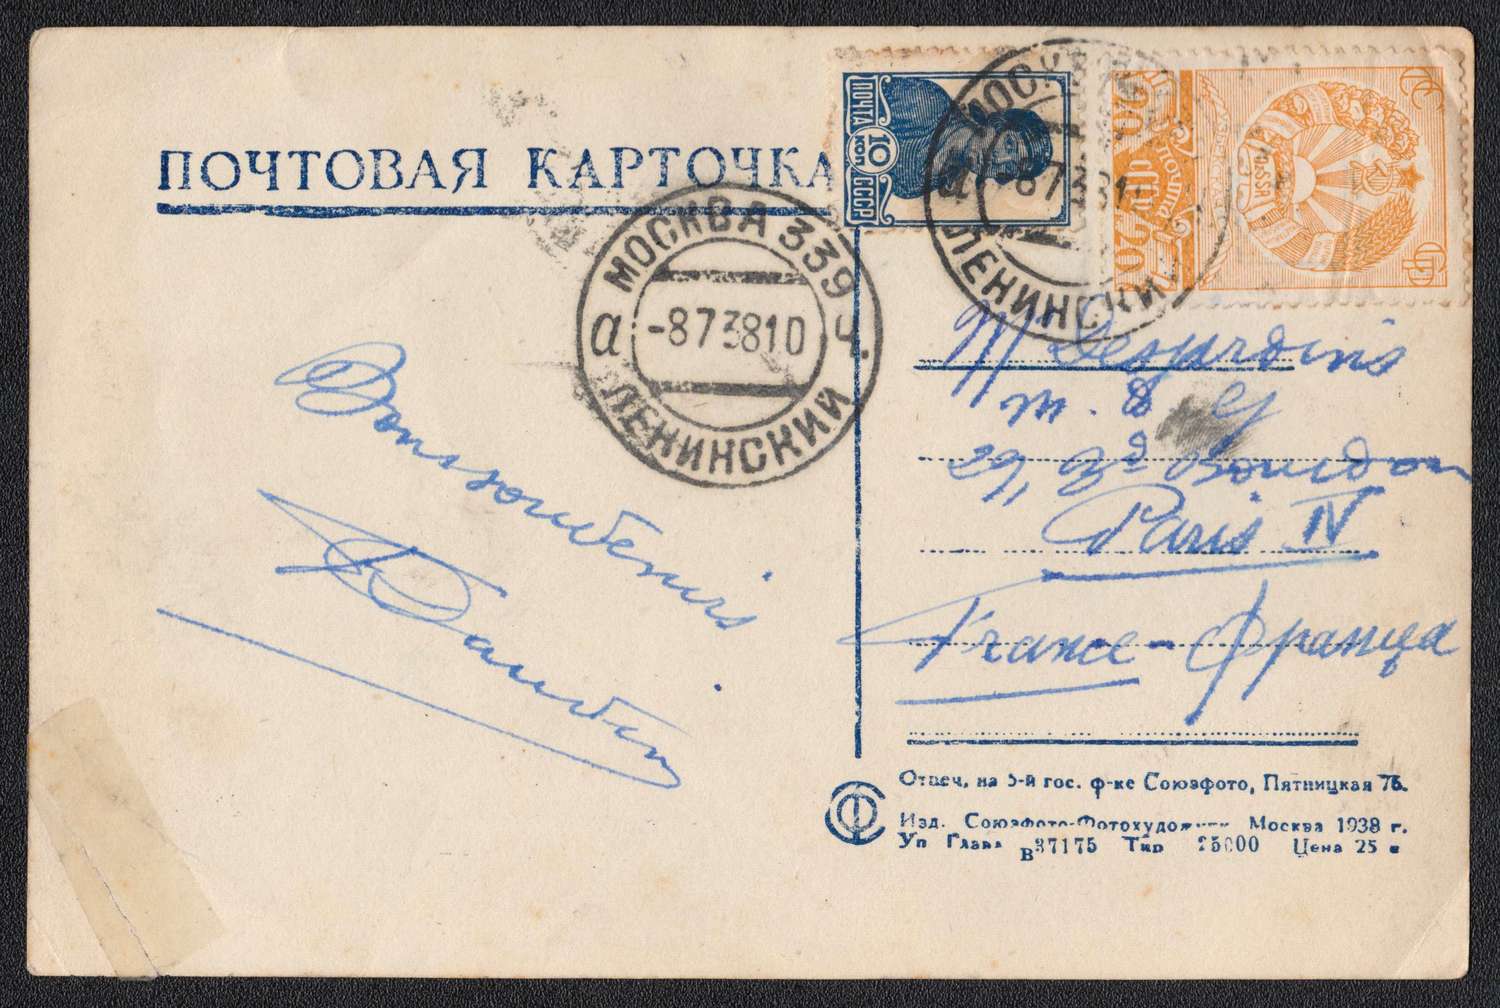 ПОЧТОВАЯ КАРТОЧКА
ПОЧТА
10 КОП
СССР
МОСКВА 339
а -873810 ч.
ЛЕНИНСКИЙ
МОСКВА
а -87381
ЛЕНИНСКИЙ
20
ПОШТА
20
Bons souvenirs
M Desjardins
29, Bd Bourdon
Paris IV
France - Франца
Отпеч. на 5-й гос. ф-ке Союзфото, Пятницкая 76.
Изд. Союзфото-Фотохудожник Москва 1938 г.
Уп Глава В37175 Тир 25000 Цена 25 к